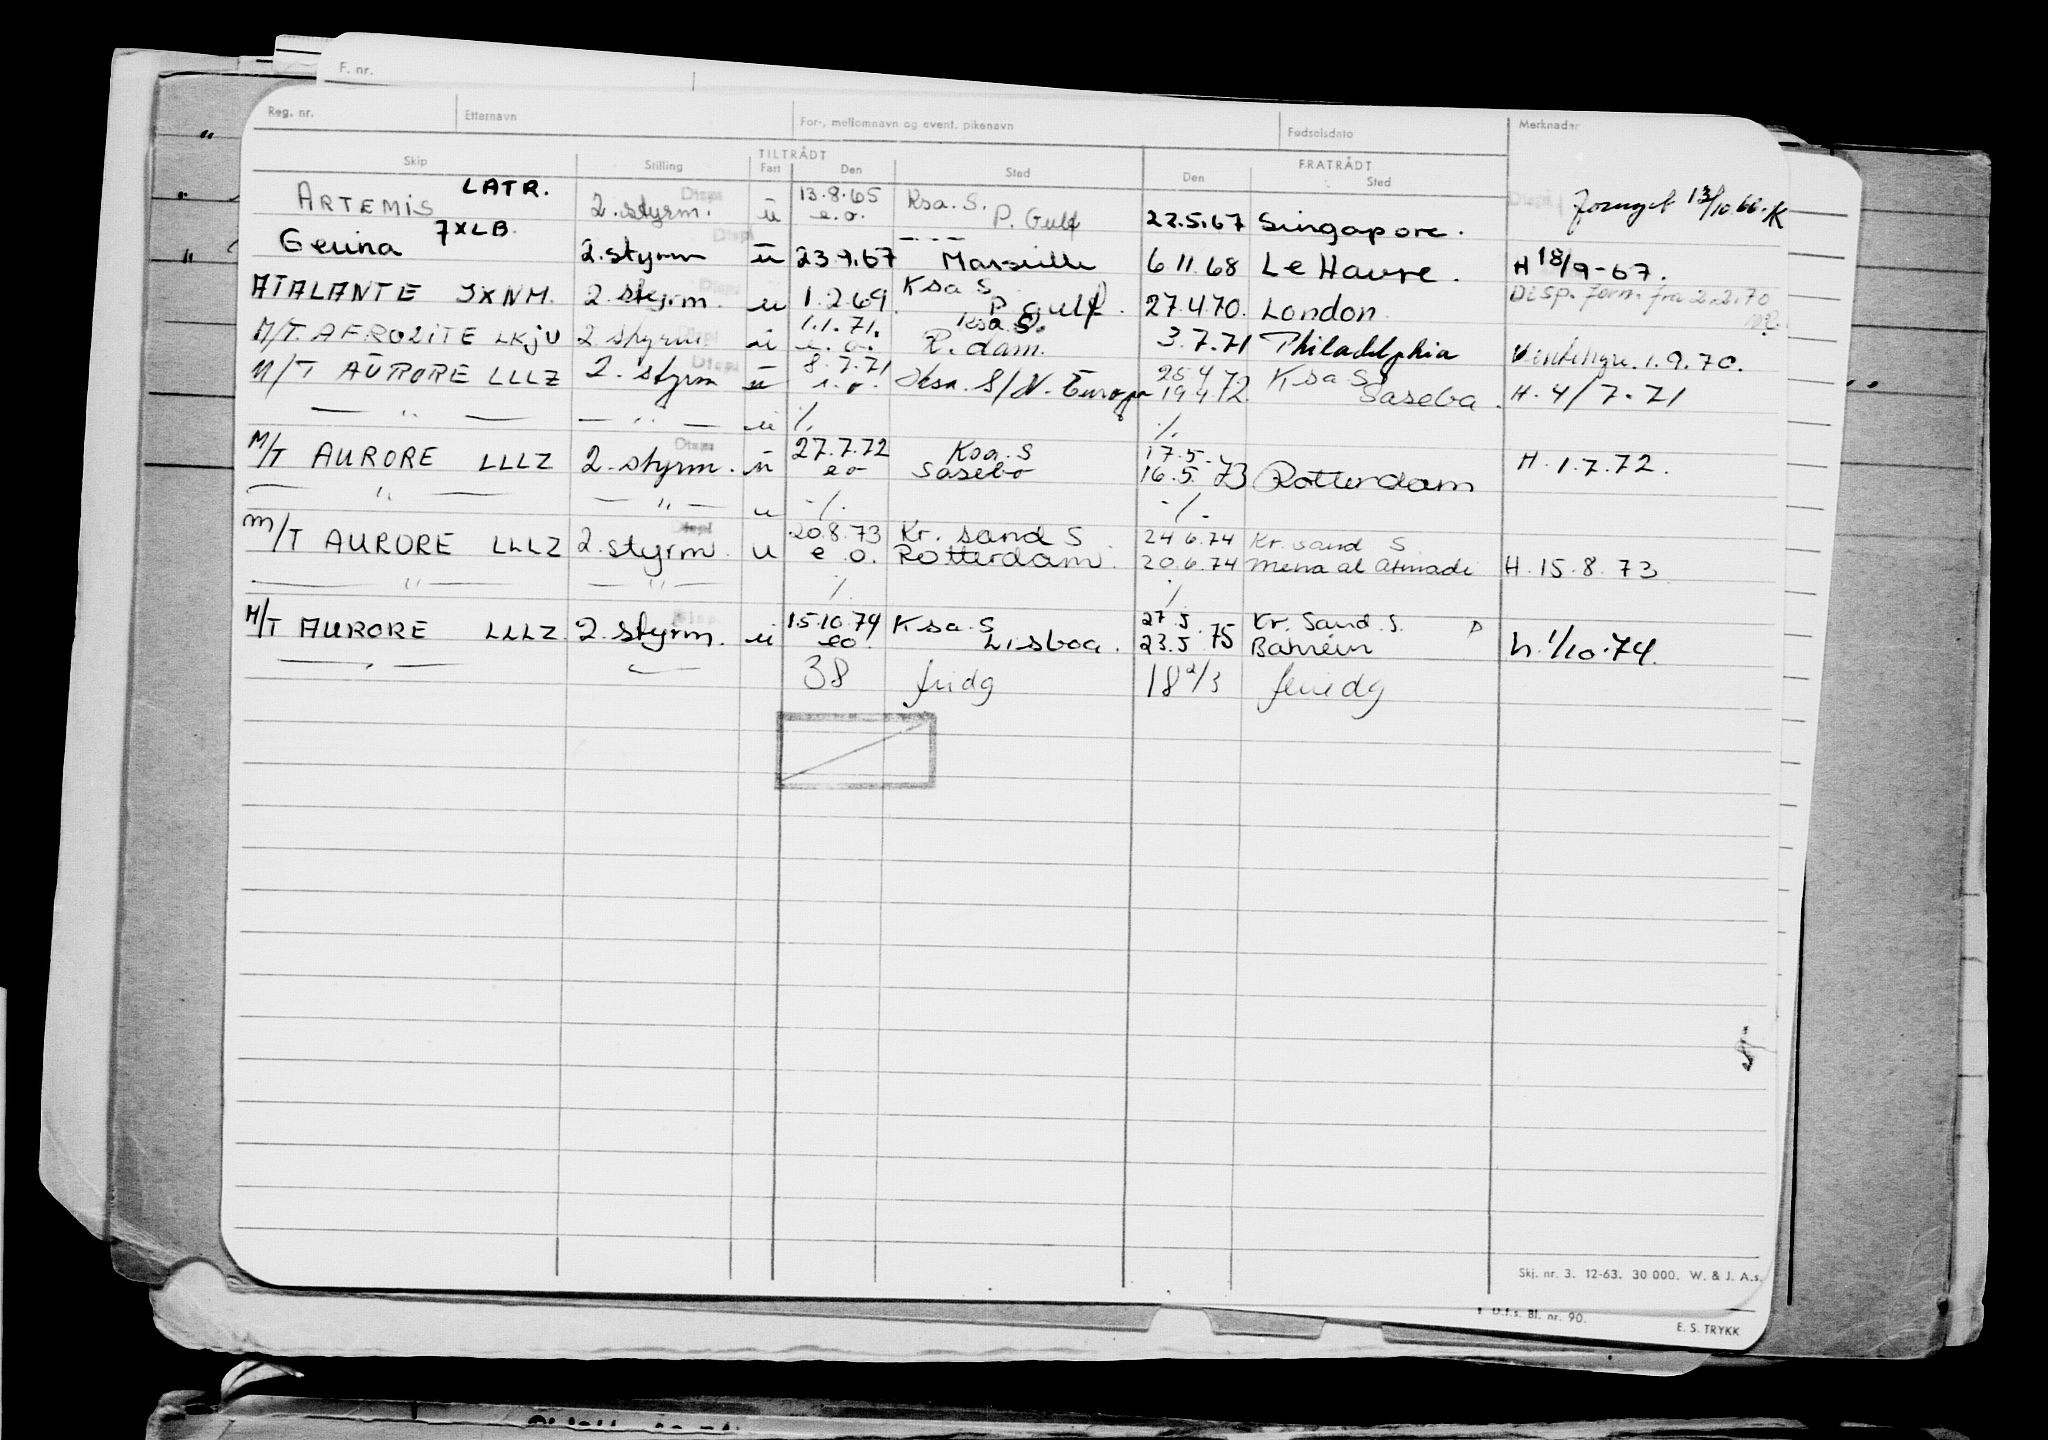 F. nr.
Reg. nr. Etternavn For-, mellomnavn og event. pikenavn Fødselsdato Merknader
TILTRÅDT FRATRÅDT
Skip Stilling Fart Den Sted Den Sted
ARTEMIS LATR. 2.styrm. Disp. u 13.8.65 e.o. Ksa. S. P. Gulf 22.5.67 Singapore. Fornyet 13/10.66. K
Gerina 7XLB. 2.styrm Disp. u 23.9.67 Marseille 6 11.68 Le Havre. H 18/9-67.
ATALANTE JXNM. 2.styrm. Disp. u 1.2.69. Ksa S P. Gulf. 27.4.70. London. Disp. form. fra 2.2.70
M/T. AFRODITE LKJU 2 styrm. Disp. u 1.1.71. e.o. Ksa. S. R.dam. 3.7.71 Philadelphia Ventehyre. 1.9.70.
M/T AURORE LLLZ 2. styrm Disp. u 8.7.71 e.o. Ksa. S/N. Europa 25 4 19 4 72. Ksa S. Sasebo. H. 4/7.71
— " — — " — u ·/. ·/.
M/T AURORE LLLZ 2.styrm. Disp. u 27.7.72 eo Ksa. S Sasebo 17.5. 16.5. 73 Rotterdam H. 1.7.72.
— " — — " — u -/. -/-
M/T AURORE LLLZ 2.styrm. Disp. u 20.8.73 e o. Kr. sand S. Rotterdam. 24 6.74 20.6.74 Kr. sand S. Mena al Ahmadi H. 15.8.73
— " — — " — /. /.
M/T AURORE LLLZ. 2.styrm. Disp. u 15.10.74 eo. Ksa. S Lisboa. 27.5 23.5.75 Kr. Sand. S. Bahrein P h. 1/10.74.
— " — — " — 38 fridg 18 2/3 feriedg
Skj. nr. 3. 12-63. 30 000. W. & J. A.s.
D.f.s. Bl. nr. 90.
E. S. TRYKK